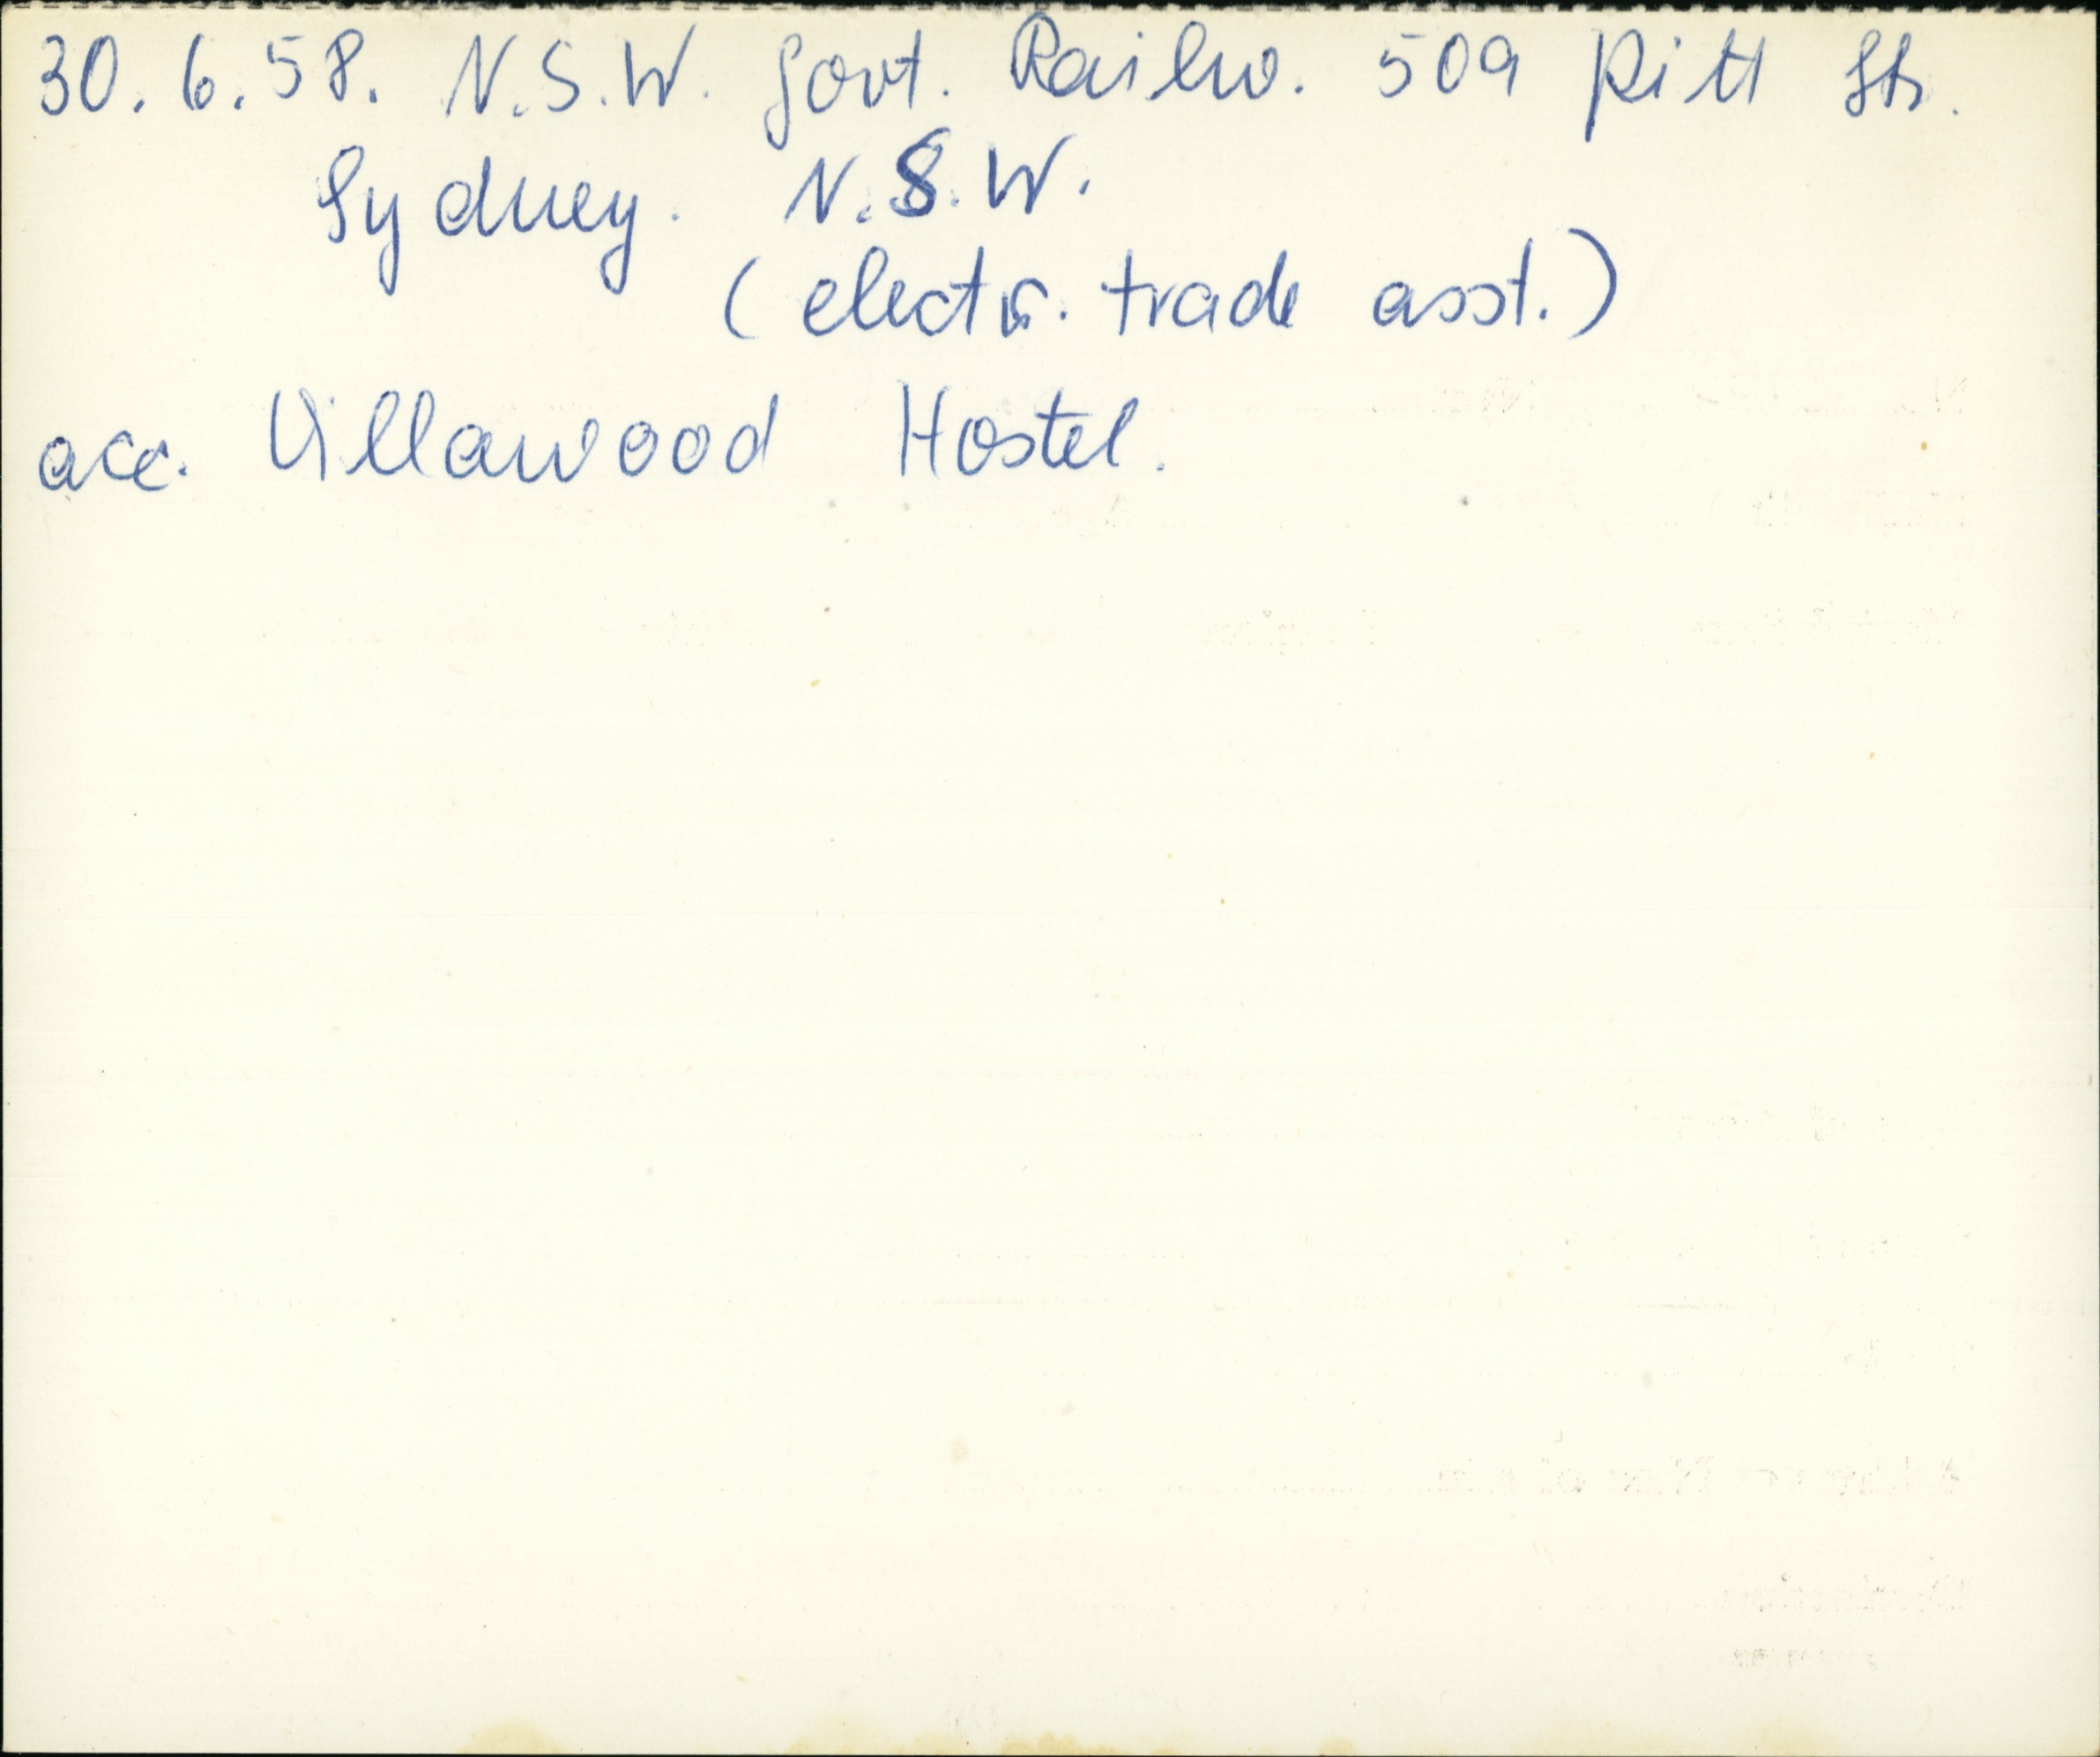 30.6.58. N.S.W. Govt. Railw. 509 Pitt Str.
Sydney. N.S.W.
(electr. trade asst.)
acc. Villawood Hostel.